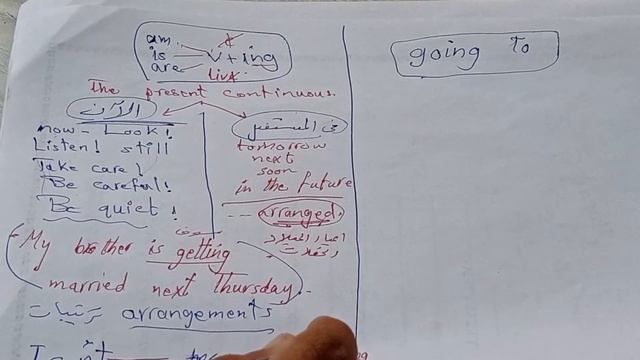 am
is
are
V + ing
The present continuous.
الآن
now - Look!
Listen! still
Take care!
Be careful!
Be quiet!
في المستقبل
tomorrow
next
soon
in the future
--- arranged.
سوف
My brother is getting
married next Thursday.
ترتيبات arrangements
going to